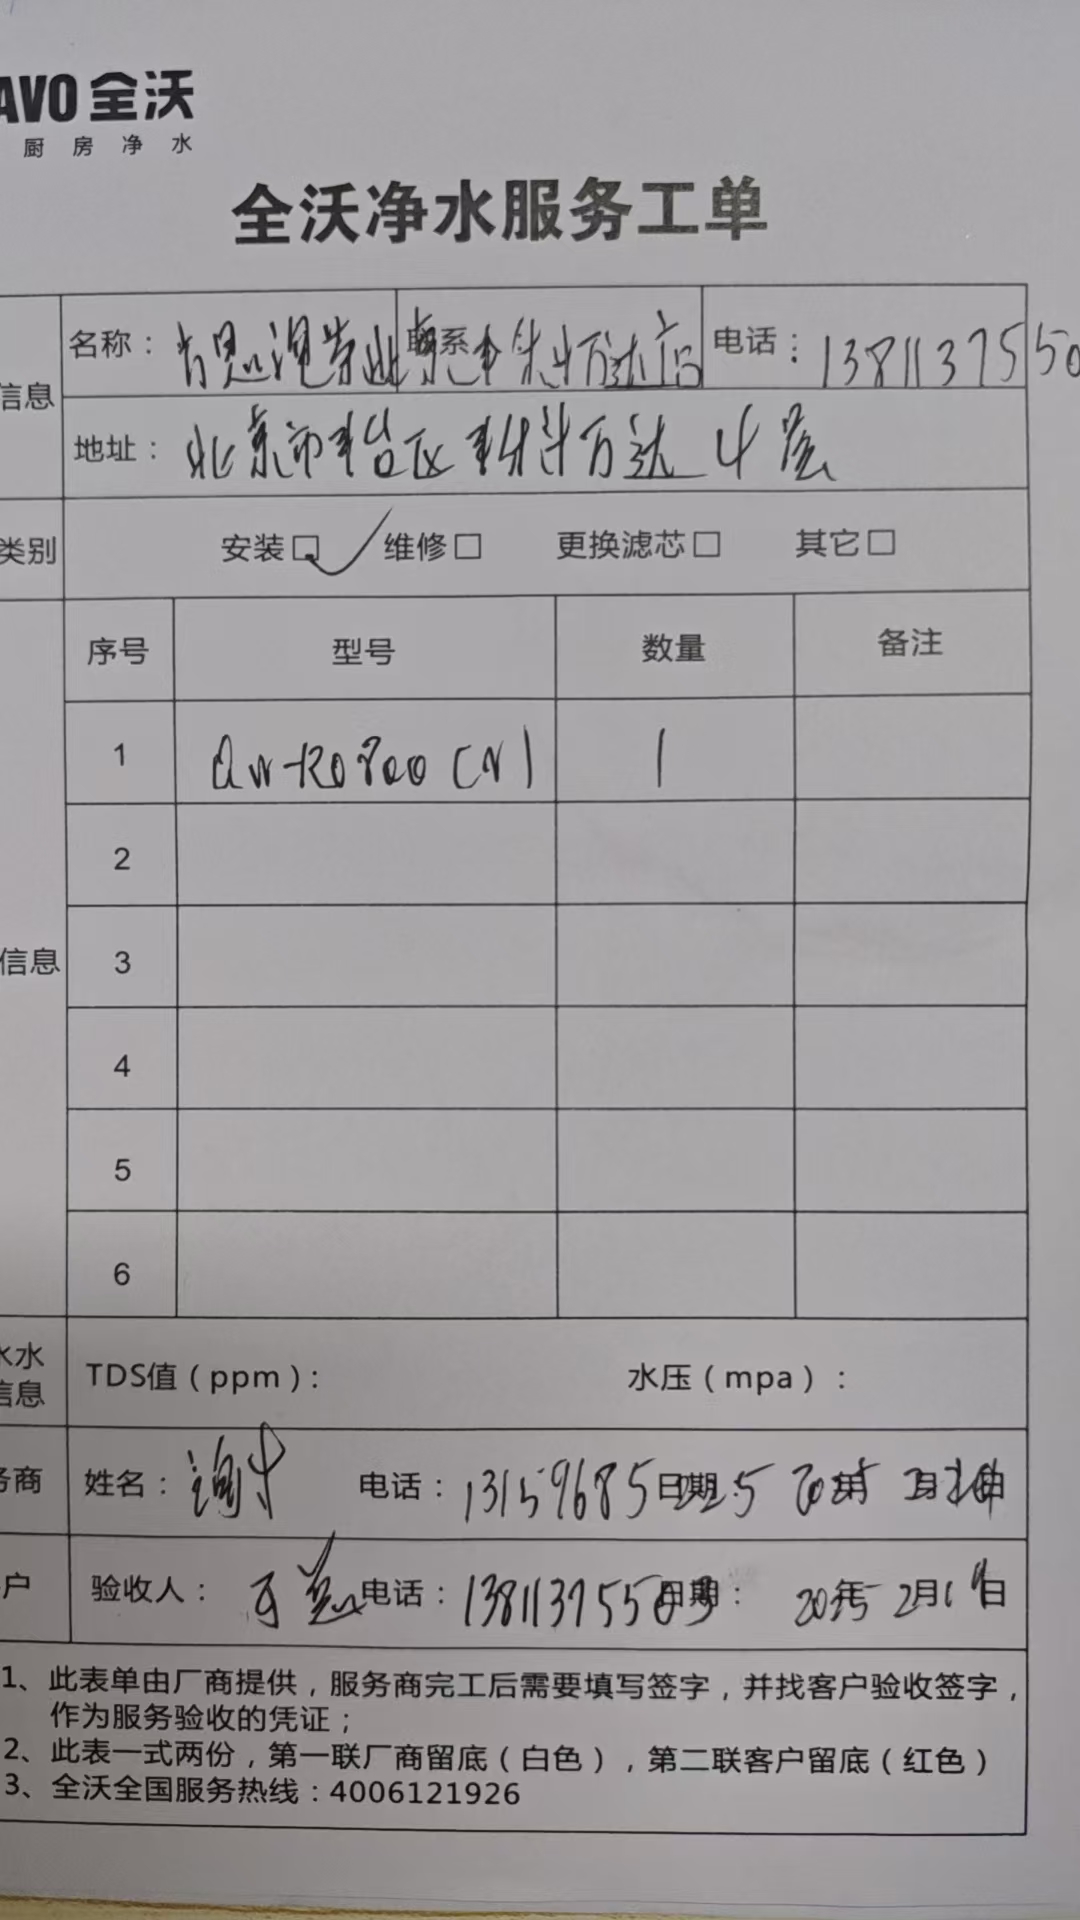 AVO 全沃
厨房净水
全沃净水服务工单
信息
名称： 联系 万达店 电话： 1381137550
地址： 北京市丰台区 万达 4层
类别 安装□ ✓ 维修□ 更换滤芯□ 其它□
序号 型号 数量 备注
1 QW-RO800 1
2
信息 3
4
5
6
水水
信息
TDS值（ppm）： 水压（mpa）：
务商 姓名：谢 电话：13159685 日期 年 月 日
户 验收人： 电话：1381137550 日期： 2025年2月 日
1、此表单由厂商提供，服务商完工后需要填写签字，并找客户验收签字，
作为服务验收的凭证；
2、此表一式两份，第一联厂商留底（白色），第二联客户留底（红色）
3、全沃全国服务热线：4006121926